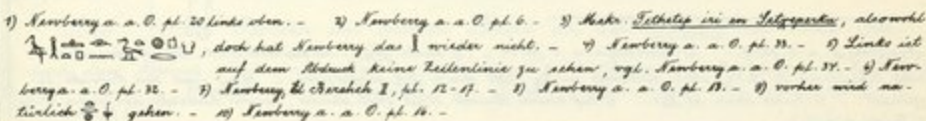 1) Newberry a. a. O. pl. 20 links oben. – 2) Newberry a. a. O. pl. 6. – 3) Mskr. Tethetep iri en Setpeperka, also wohl
, doch hat Newberry das 𓇋 wieder nicht. – 4) Newberry a. a. O. pl. 33. – 5) Links ist
auf dem Abdruck keine Zeilenlinie zu sehen, vgl. Newberry a. a. O. pl. 34. – 6) New-
berry a. a. O. pl. 32. – 7) Newberry, El Bersheh I, pl. 12–17. – 8) Newberry a. a. O. pl. 13. – 9) vorher wird na-
türlich gehen. – 10) Newberry a. a. O. pl. 16. –